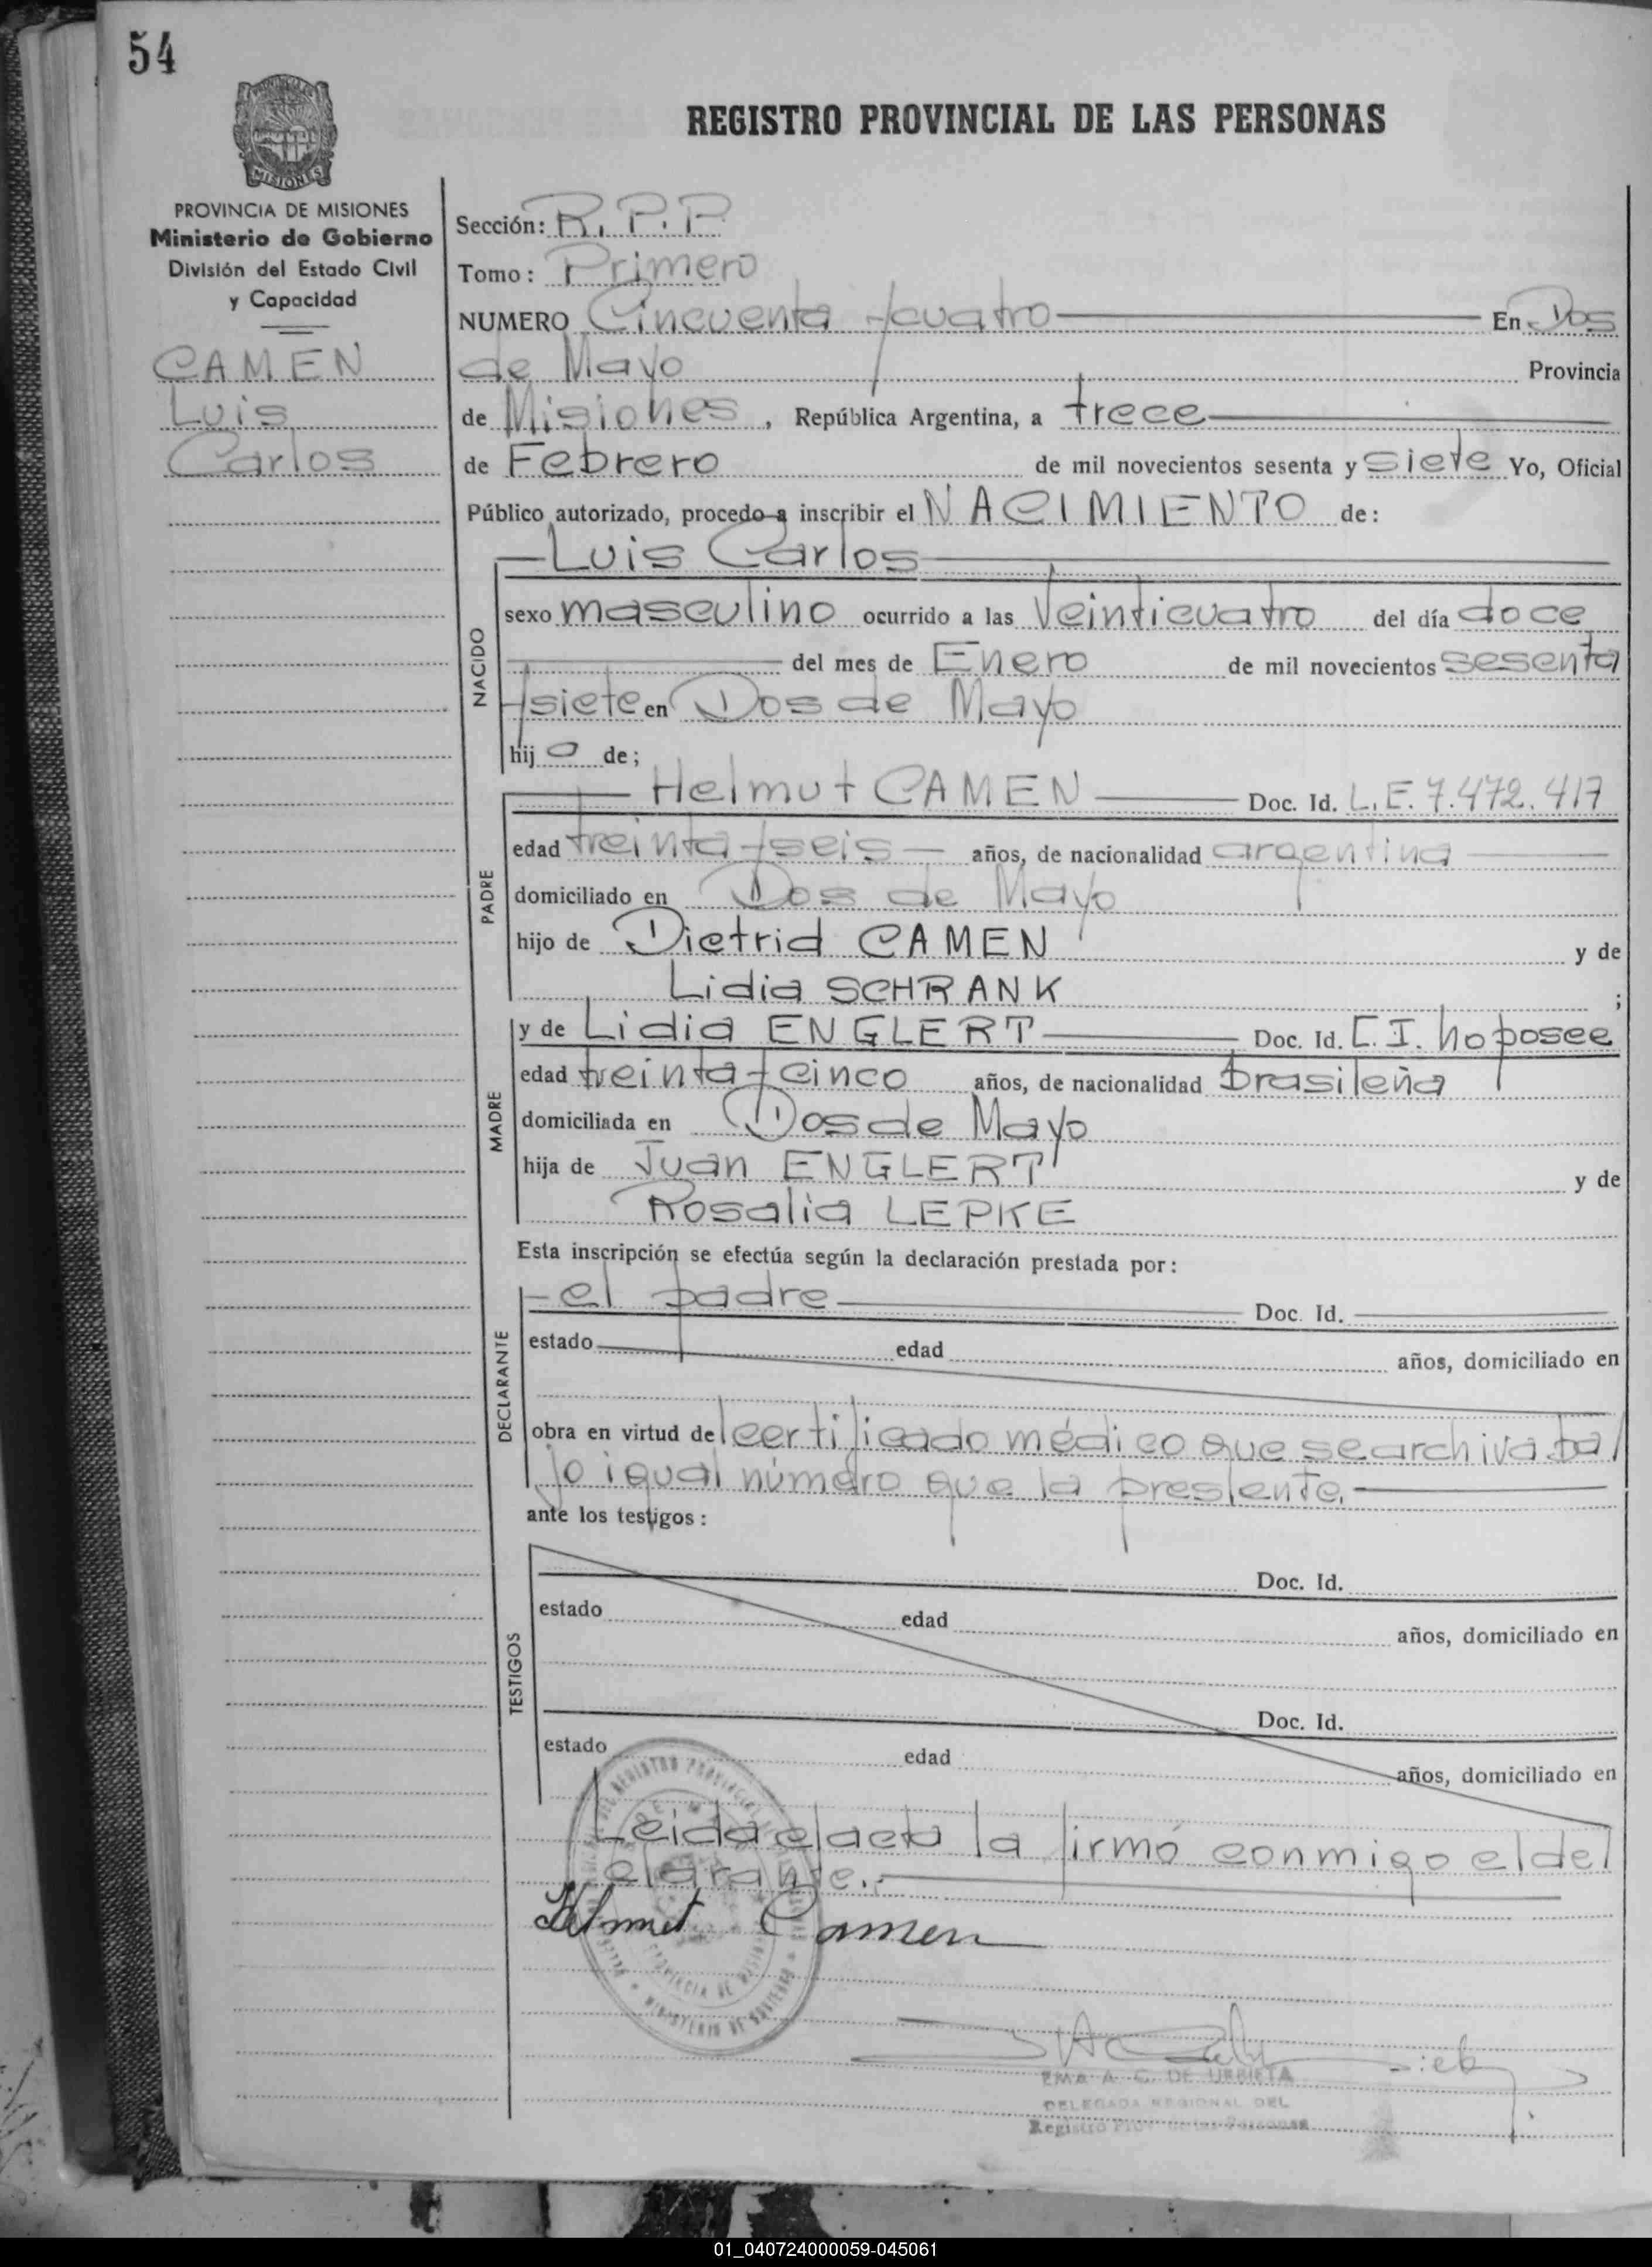 54
REGISTRO PROVINCIAL DE LAS PERSONAS
MISIONES
PROVINCIA DE MISIONES
Ministerio de Gobierno
División del Estado Civil
y Capacidad
CAMEN
Luis
Carlos
Sección: R. P. P
Tomo: Primero
NUMERO Cincuenta y cuatro En Dos
de Mayo Provincia
de Misiones, República Argentina, a trece
de Febrero de mil novecientos sesenta y siete Yo, Oficial
Público autorizado, procedo a inscribir el NACIMIENTO de:
NACIDO
Luis Carlos
sexo masculino ocurrido a las Veinticuatro del día doce
del mes de Enero de mil novecientos sesenta
y siete en Dos de Mayo
hijo de;
PADRE
Helmut CAMEN Doc. Id. L.E. 7.472.417
edad treinta y seis años, de nacionalidad argentina
domiciliado en Dos de Mayo
hijo de Dietrid CAMEN y de
Lidia SCHRANK ;
MADRE
y de Lidia ENGLERT Doc. Id. C.I. no posee
edad treinta y cinco años, de nacionalidad brasileña
domiciliada en Dos de Mayo
hija de Juan ENGLERT y de
Rosalia LEPKE
Esta inscripción se efectúa según la declaración prestada por:
DECLARANTE
el padre Doc. Id.
estado edad años, domiciliado en
obra en virtud del certificado médico que se archiva ba/
jo igual número que la presente.
ante los testigos:
TESTIGOS
Doc. Id.
estado edad años, domiciliado en
Doc. Id.
estado edad años, domiciliado en
Leída el acta la firmó conmigo el de/
clarante.
Helmut Camen
EMA A. C. DE URRIETA
DELEGADA REGIONAL DEL
Registro Prov. de las Personas
01_040724000059-045061